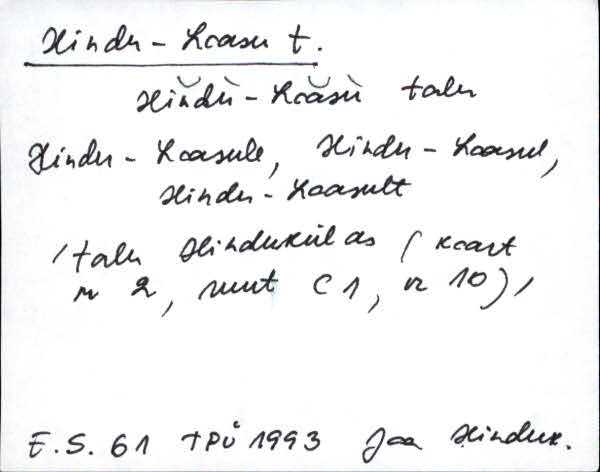 Hindu-Loasu t.
Hĭndù-Lŏăsù talu
Hindu-Loasule, Hindu-Loasul,
Hindu-Loasult
/talu Hindukülas (kaart
nr 2, ruut C 1, nr 10)/
E.S. 61 TPÜ 1993 Jaa Hinduk.